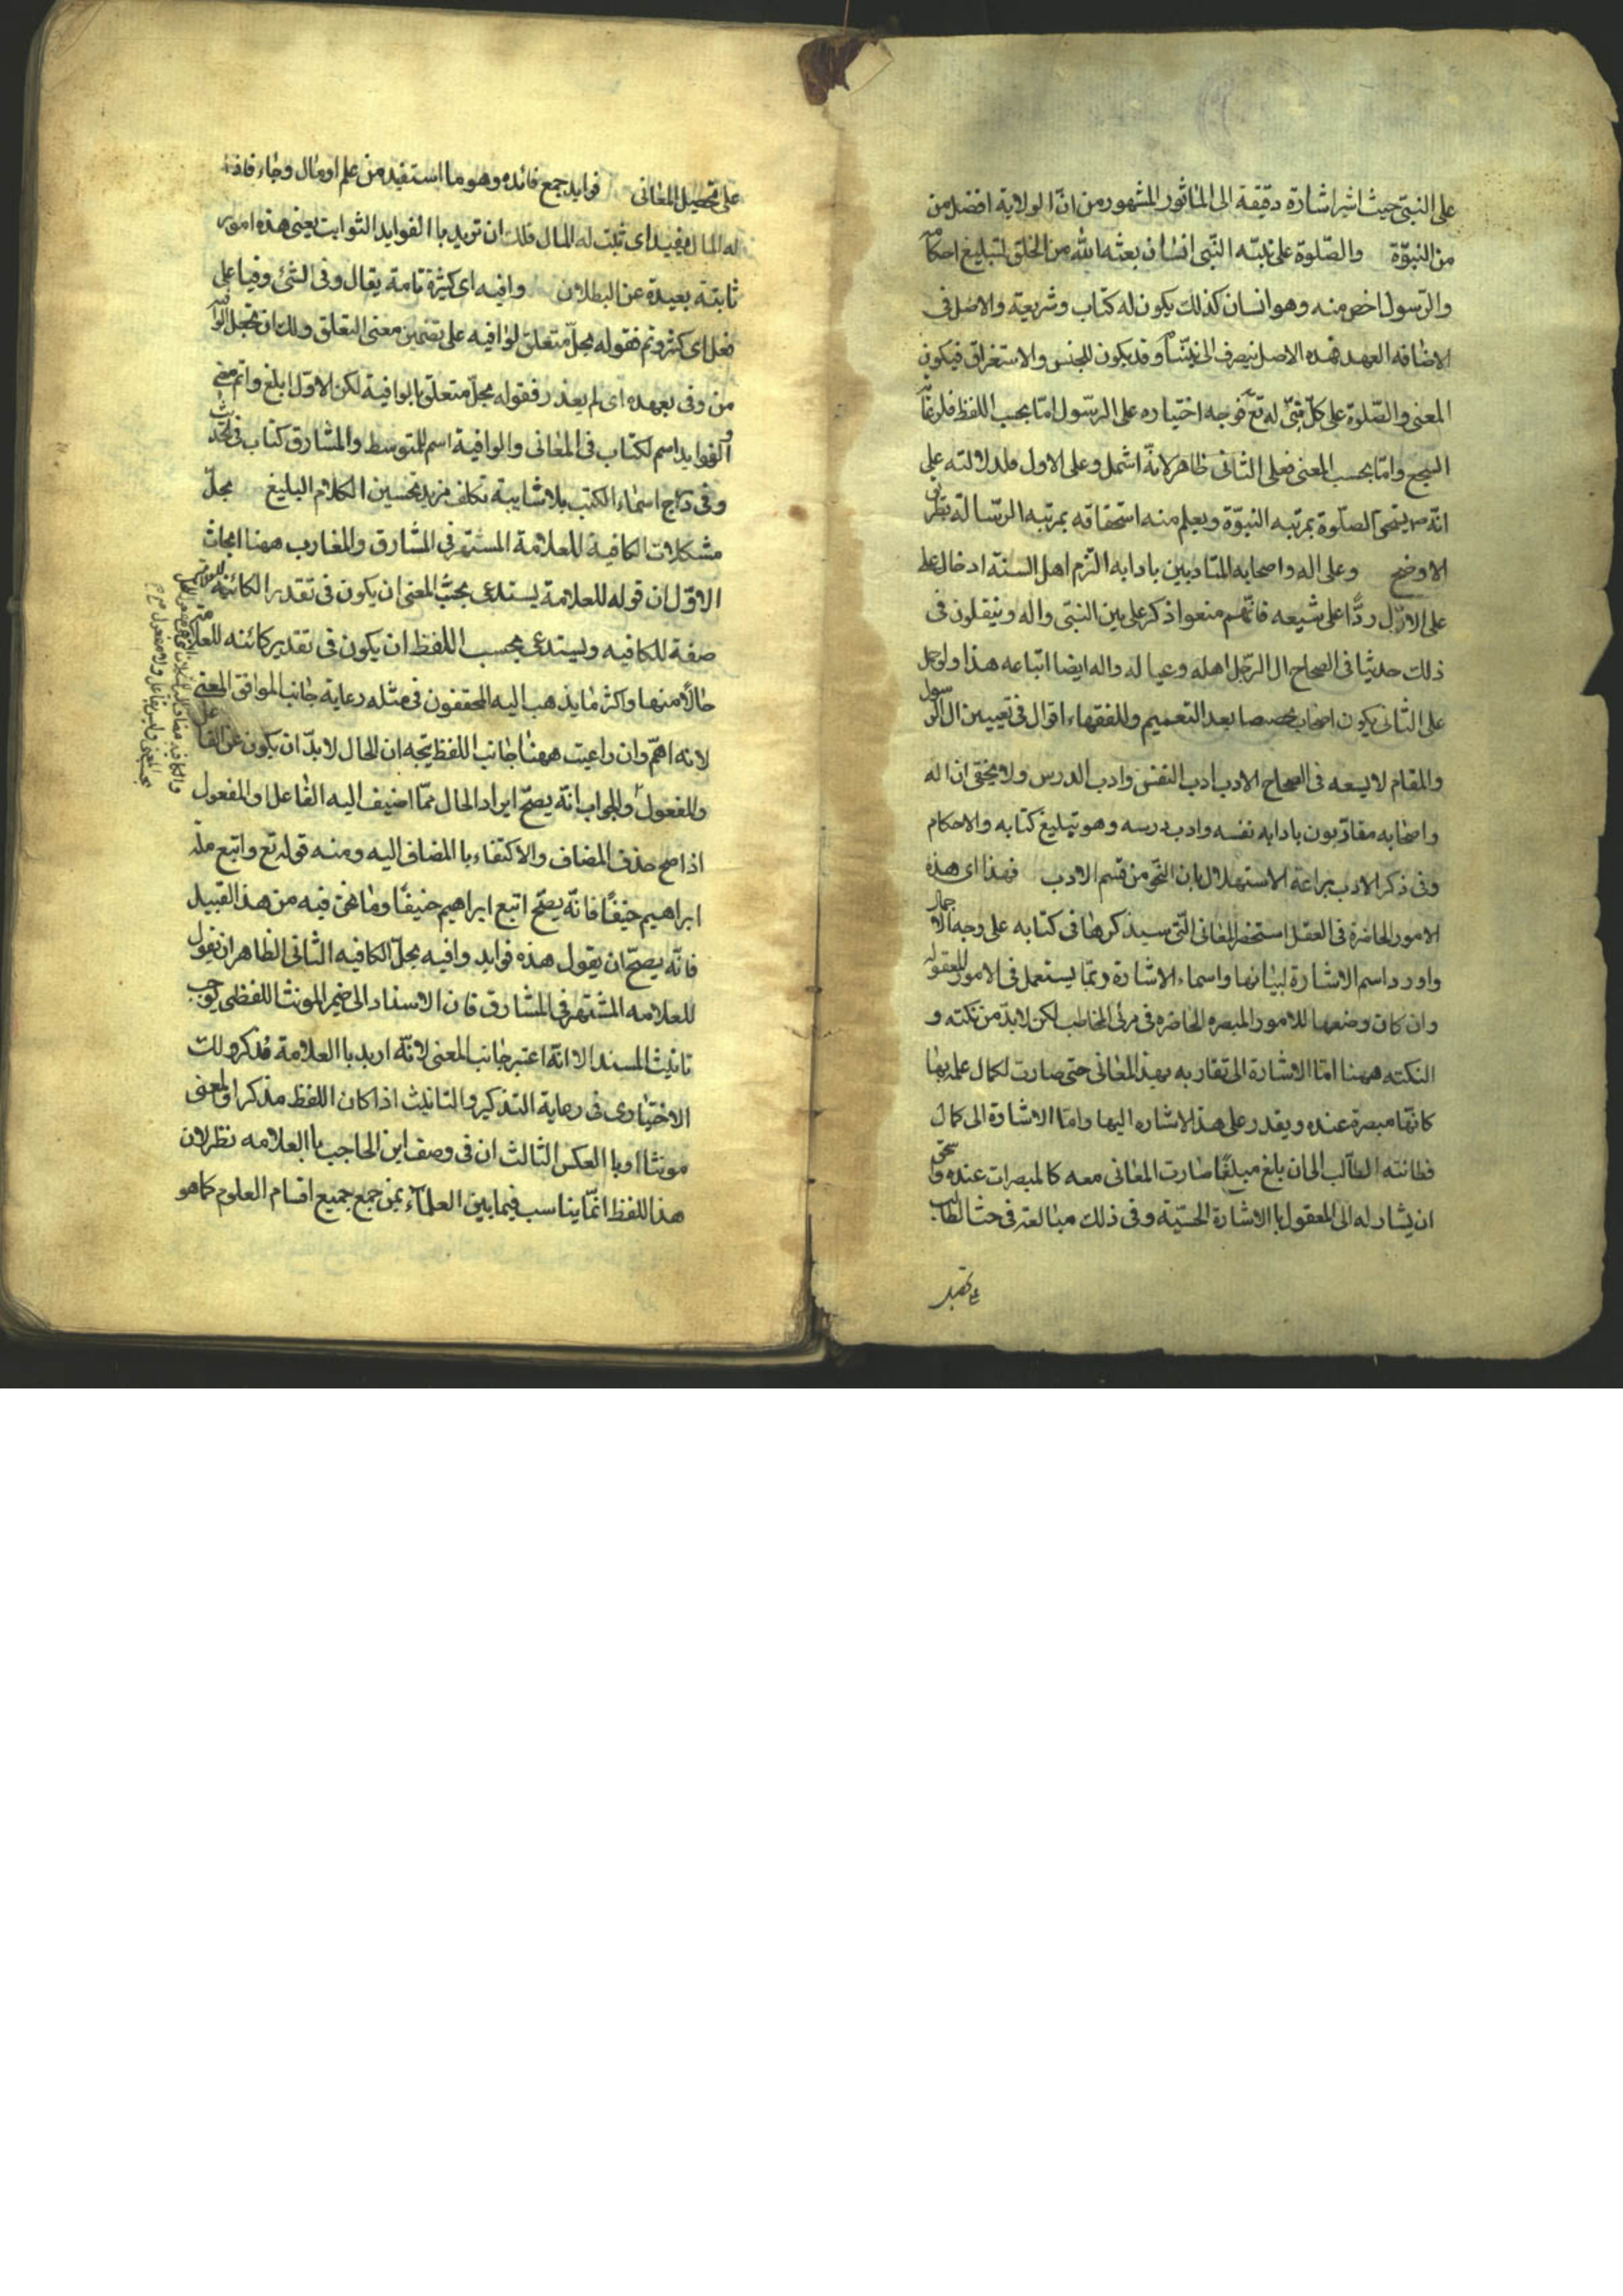 على النبى حيث اشر اشارة دقيقة الى الماثور المشهور من ان الولاية افضل من
من النبوّة والصّلوة على نبيّه النّبى انسان بعثه الله من الخلق لتبليغ احكامه
والرّسول اخص منه وهو انسان كذلك يكون له كتاب وشريعة والاصل فى
الاضافه العهد فهذه الاصل ينصرف الى نبيّنا وقد يكون للجنس والاستغراق فيكون
المعنى والصّلوة على كلّ نبىّ له تع فوجه اختياره على الرّسول امّا بحسب اللفظ فلرعاية
السجع وامّا بحسب المعنى فعلى الثانى ظاهر لانّه اشمل وعلى الاول فلدلالته على
انّه يستحق الصلّوة بمرتبه النبوّة ويعلم منه استحقاقه بمرتبه الرّسالة بطريق
الاوضح وعلى اله واصحابه المتاديين بادابه التزم اهل السنة ادخال على
على الاوّل ردًّا على شيعه فانّهم منعوا ذكر على بين النبّى واله وينقلون فى
ذلك حديثا فى الصحاح ال الرّجل اهله وعياله واله ايضا اتباعه هذا ولو حمل
على الثّانى يكون اصحاب مخصصا بعد التعميم وللفقهاء اقوال فى تعيين ال الرسول
والمقام لا يسعه فى الصحاح الادب ادب النفس وادب الدرس ولا يخفى ان اله
واصحابه متادّبون بادابه نفسه وادب درسه وهو تبليغ كتابه والاحكام
وفى ذكر الادب براعة الاستهلال بان النّحو من قسم الادب فهذا اى هذه
الامور الحاضرة فى العقل استحضر المعانى الّتى سيذكرها فى كتابه على وجه الاجمال
واورد اسم الاشارة لبيانها واسماء الاشارة ربّما يستعمل فى الامور المعقوله
وان كان وضعها للامور المبصره الحاضره فى مرئى المخاطب لكن لابدّ من نكته و
النكته ههنا امّا الاشارة الى تقاربه بهذ المعانى حتى صارت لكمال علمه بها
كانّها مبصرة عنده ويقدر على هذ الاشاره اليها وامّا الاشارة الى كمال
فطانته الطالب الى ان بلغ مبلغًا صارت المعانى معه كالمبصرات عنده واستحق
ان يشار له الى المعقول با الاشارة الحسّية وفى ذلك مبالغة فى حث الطالب
على تحصيل المعانى فوايد جمع فائده وهو ما استفيد من علم او مال وجاء فاد
له المال يفيد اى ثبت له المال فلك ان تريد با الفوايد الثوابت يعنى هذه امور
ثابتة بعيدة عن البطلان وافيه اى كثيرة تامة يقال وفى الشئ وفيا على
فعل اى كثر وتم فقوله بحلّ متعلق لوافيه على تضمين معنى التعلق ولك ان تجعل الوافية
من وفى بعهده اى لم يغدر فقوله بحلّ متعلّق با لوافية لكن الاوّل ابلغ واتم
الفوايد اسم لكتاب فى المعانى والوافية اسم للمتوسط والمشارق كتاب فى
وفى درّاج اسماء الكتب بلا شايبة تكلف مزيد تحسين الكلام البليغ بحلّ
مشكلات الكافية للعلامة المشتهر فى المشارق والمغارب ههنا ابحاث
الاوّل ان قوله للعلامة يستدعى بحسب المعنى ان يكون فى تقدير الكائنة
صفة للكافيه ويستدعى بحسب اللفظ ان يكون فى تقدير كائنه للعلامة
حالًا منها واكثر ما يذهب اليه المحققون فى مثله رعاية جانب الموافق المعنى
لانه اهمّ وان راعيت ههنا جانب اللفظ يتجه ان الحال لابدّ ان يكون عن الفاعل
والمفعول والجواب انّه يصحّ ايراد الحال ممّا اضيف اليه الفاعل او المفعول
اذا صح حذف المضاف والاكتفاء با المضاف اليه ومنه قوله تع واتبع ملة
ابراهيم حنيفًا فانّه يصحّ اتبع ابراهيم حنيفًا وما نحن فيه من هذ القبيل
فانّه يصحّ ان يقول هذه فوايد وافيه بحلّ الكافيه الثانى الظاهر ان يقول
للعلامه المشتهر فى المشارق فان الاسناد الى ضمير المونث اللفظى يوجب
تانيث المسند الا انّه اعتبر جانب المعنى لانّه اريد با العلامة مذكر ولك
الاختيار فى رعاية التذكير والتانيث اذا كان اللفظ مذكرا والمعنى
مونثا او با العكس الثالث ان فى وصف ابن الحاجب با العلامه نظر لان
هذ اللفظ انّما يناسب فيما بين العلمآء بمن جمع جميع اقسام العلوم كما هو